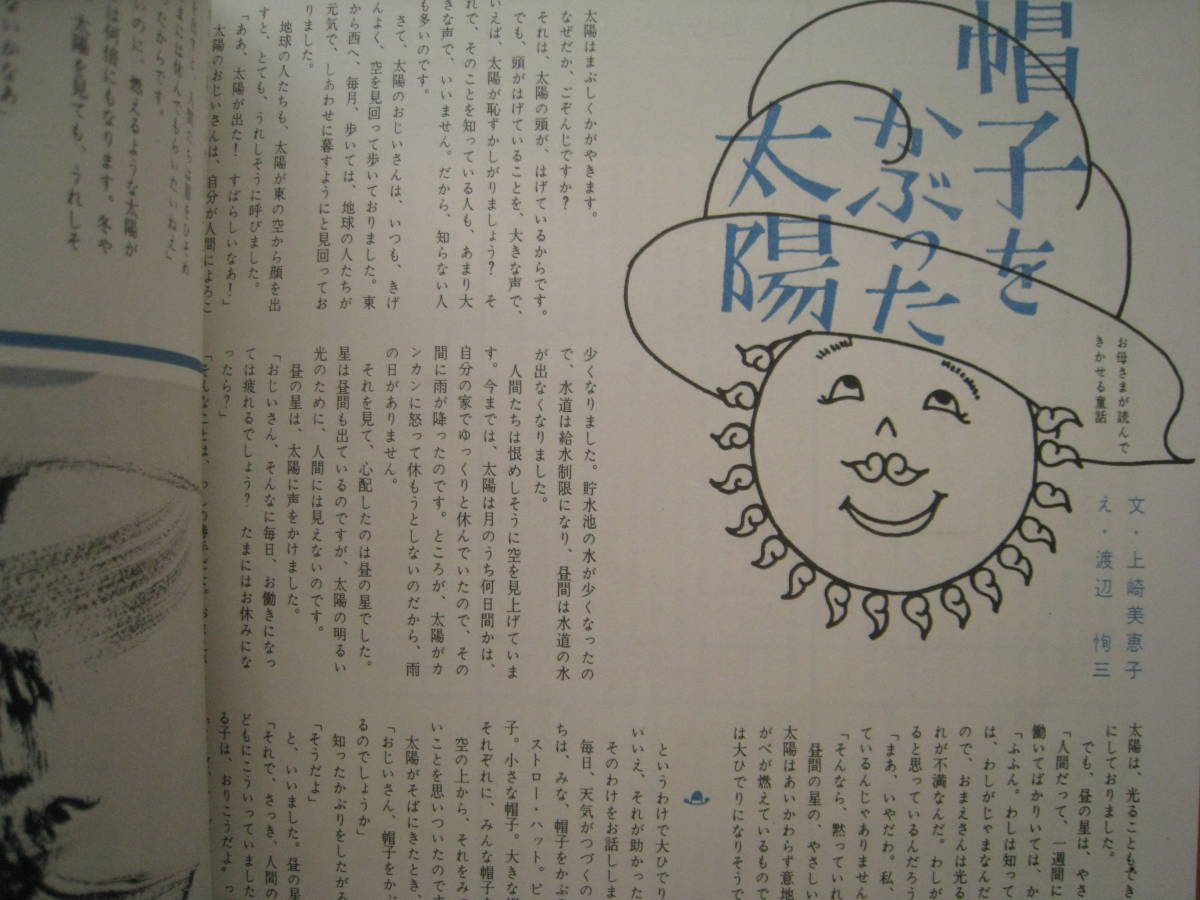 帽子を
かぶった
太陽
お母さまが読んで
きかせる童話
文・上崎美恵子
え・渡辺恂三
太陽はまぶしくかがやきます。
なぜだか、ごぞんじですか？
それは、太陽の頭が、はげているからです。
でも、頭がはげていることを、大きな声で、
いえば、太陽が恥ずかしがりましょう？　そ
れで、そのことを知っている人も、あまり大
きな声で、いいません。だから、知らない人
も多いのです。
さて、太陽のおじいさんは、いつも、きげ
んよく、空を見回って歩いておりました。東
から西へ、毎月、歩いては、地球の人たちが
元気で、しあわせに暮すようにと見回ってお
りました。
地球の人たちも、太陽が東の空から顔を出
すと、とても、うれしそうに呼びました。
「ああ、太陽が出た！　すばらしいなあ！」
太陽のおじいさんは、自分が人間によろこ
少くなりました。貯水池の水が少くなったの
で、水道は給水制限になり、昼間は水道の水
が出なくなりました。
人間たちは恨めしそうに空を見上げていま
す。今までは、太陽は月のうち何日間かは、
自分の家でゆっくりと休んでいたので、その
間に雨が降ったのです。ところが、太陽がカ
ンカンに怒って休もうとしないのだから、雨
の日がありません。
それを見て、心配したのは昼の星でした。
星は昼間も出ているのですが、太陽の明るい
光のために、人間には見えないのです。
昼の星は、太陽に声をかけました。
「おじいさん、そんなに毎日、お働きになっ
ては疲れるでしょう？　たまにはお休みにな
ったら？」
太陽は、光ることもでき
にしておりました。
でも、昼の星は、やさ
「人間だって、一週間に
働いてばかりいては、か
「ふふん。わしは知って
は、わしがじゃまなんだ
ので、おまえさんは光る
れが不満なんだ。わしが
ると思っているんだろう
「まあ、いやだわ。私、
ているんじゃありません
「そんなら、黙っていれ
昼間の星の、やさしい
太陽はあいかわらず意地
がべが燃えているもので
は大ひでりになりそうで
というわけで大ひでり
いいえ、それが助かった
そのわけをお話ししま
毎日、天気がつづくの
ちは、みな、帽子をかぶ
ストロー・ハット。ピ
子。小さな帽子。大きな
それぞれに、みんな帽子
空の上から、それをみ
いことを思いついたのです
太陽がそばにきたとき、
「おじいさん、帽子をか
るのでしょうか」
知ったかぶりをしたがる
「そうだよ」
と、いいました。昼の星
「それで、さっき、人間の
どもにこういっていました
る子は、おりこうだよ。っ
まには休んでもらいたいねえ」
ったからです。
いのに、燃えるような太陽が
は何倍にもなります。冬や
太陽を見ても、うれしそ
ないかなあ」